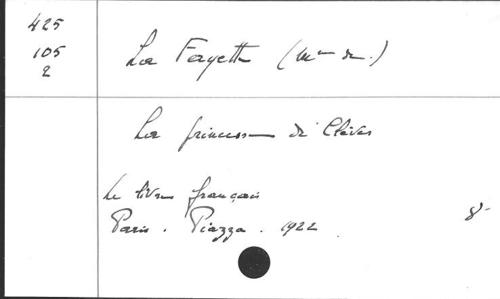 425
105
2
La Fayette (Mme de.)
La princesse de Clèves
Le livre français
Paris. Piazza. 1922 8°